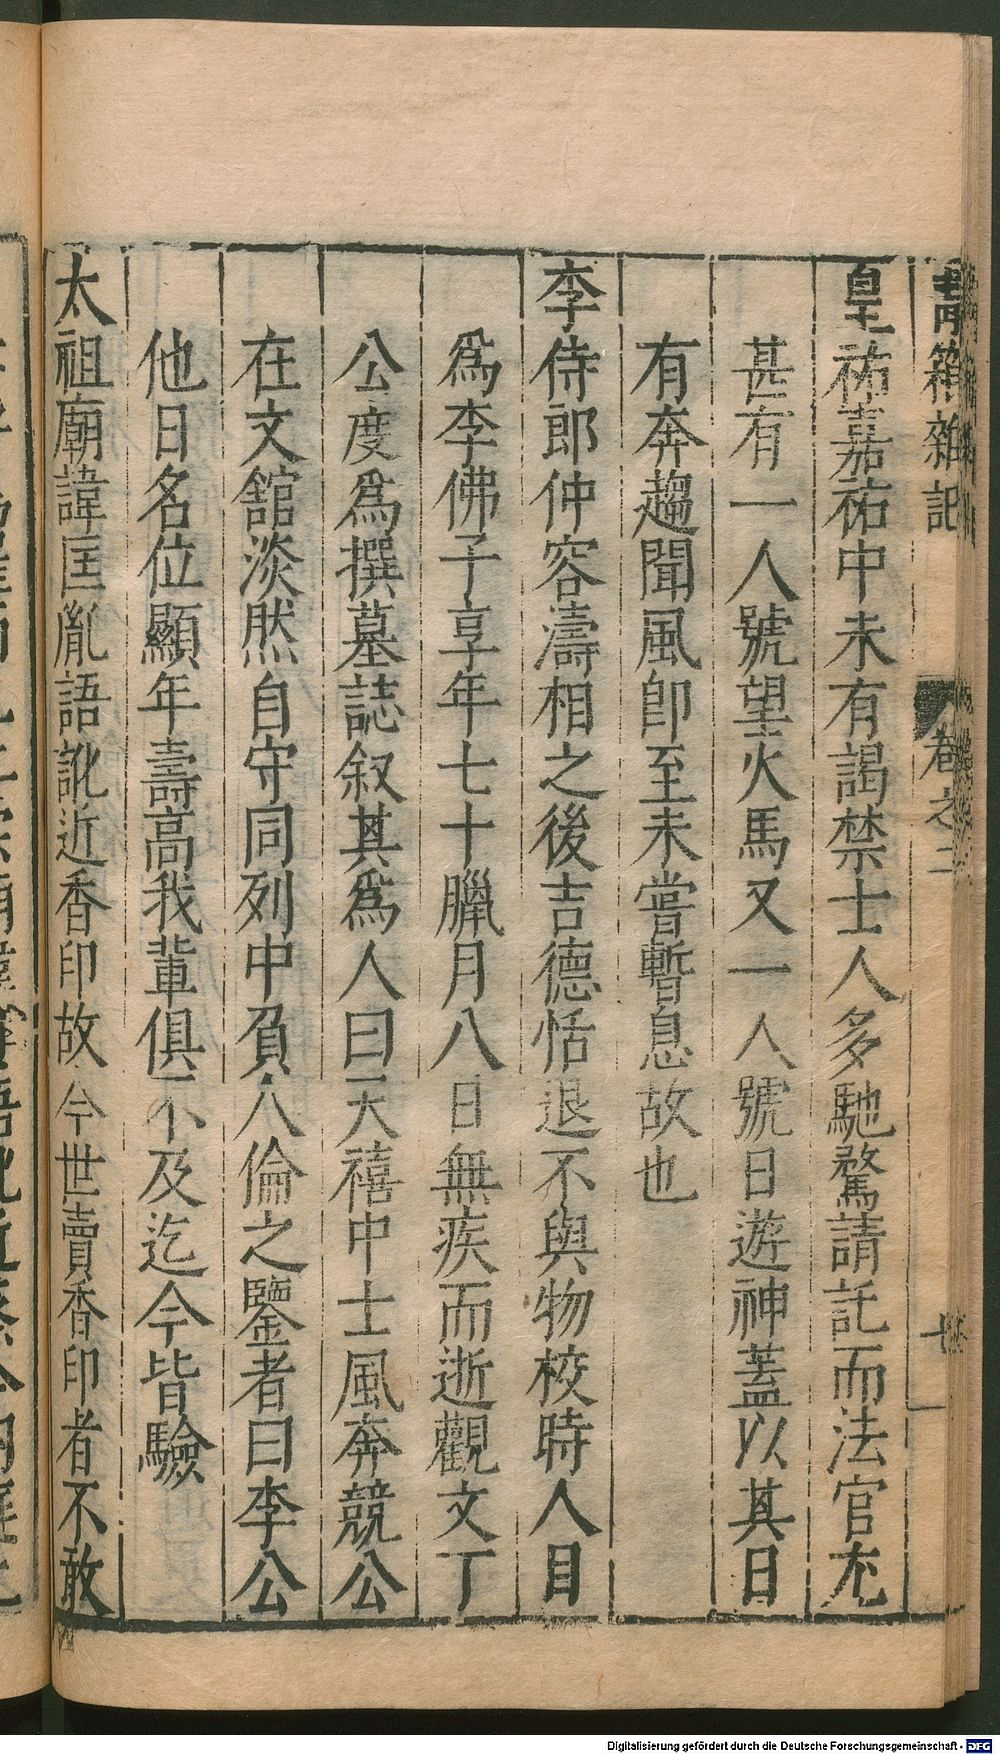 青箱雜記 卷之二
皇祐嘉祐中未有謁禁士人多馳騖請託而法官尤
甚有一人號望火馬又一人號日遊神蓋以其日
有奔趨聞風即至未嘗暫息故也
李侍郎仲容濤相之後吉德恬退不與物校時人目
爲李佛子享年七十臘月八日無疾而逝觀文丁
公度爲撰墓誌叙其爲人曰天禧中士風奔競公
在文館淡然自守同列中負人倫之鑒者曰李公
他日名位顯年壽高我輩俱不及迄今皆驗
太祖廟諱匡胤語訛近香印故今世賣香印者不敢
Digitalisierung gefördert durch die Deutsche Forschungsgemeinschaft - DFG